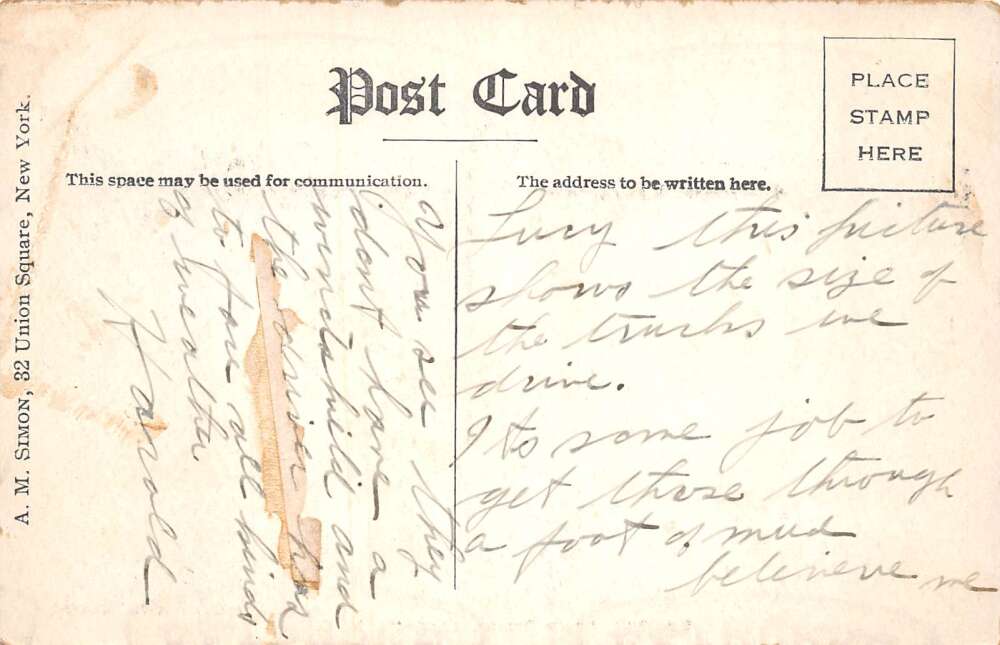 Post Card
PLACE
STAMP
HERE
This space may be used for communication.
The address to be written here.
A. M. SIMON, 32 Union Square, New York.
Lucy this picture
shows the size of
the trucks we
drive.
Its some job to
get these through
a foot of mud
beleieve me
You see they
dont have a
windshield and
the driver has
to face all kinds
of weather
Harold